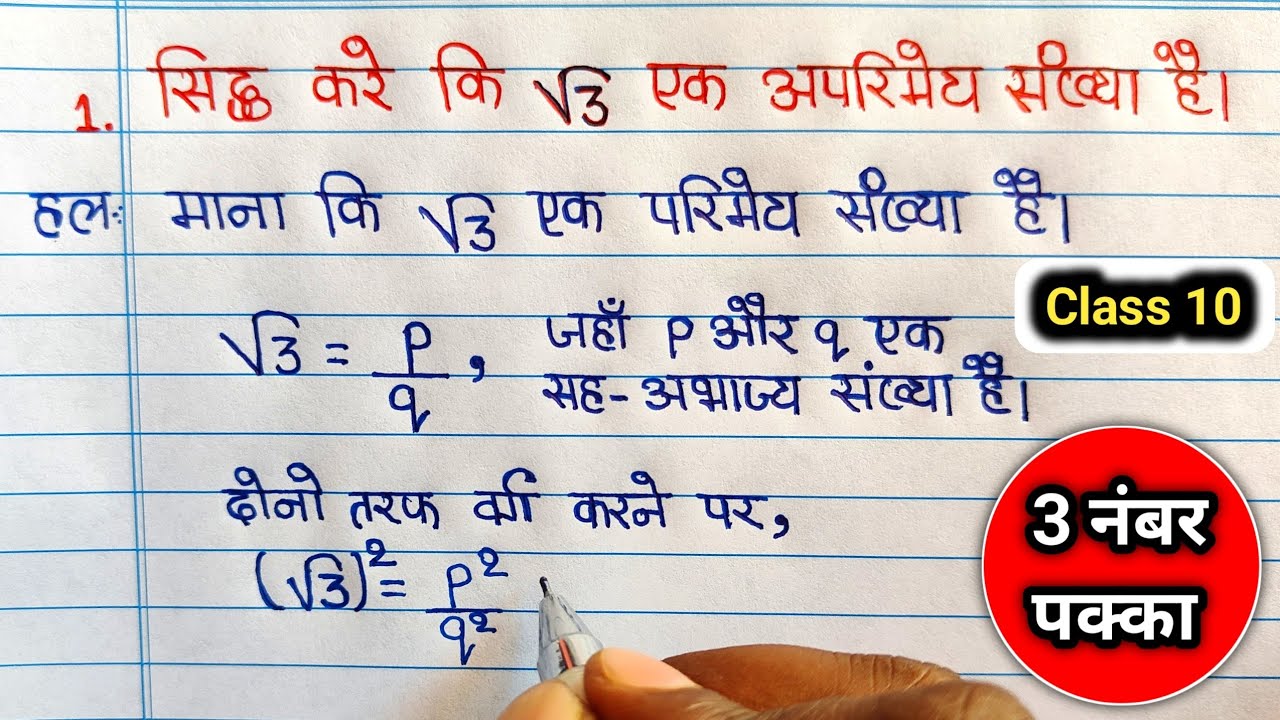 1. सिद्ध करे कि √3 एक अपरिमेय संख्या है।
हल: माना कि √3 एक परिमेय संख्या है।
Class 10
√3 = p/q, जहाँ p और q एक
सह-अभाज्य संख्या है।
दोनो तरफ वर्ग करने पर,
(√3)² = p²/q²
3 नंबर
पक्का